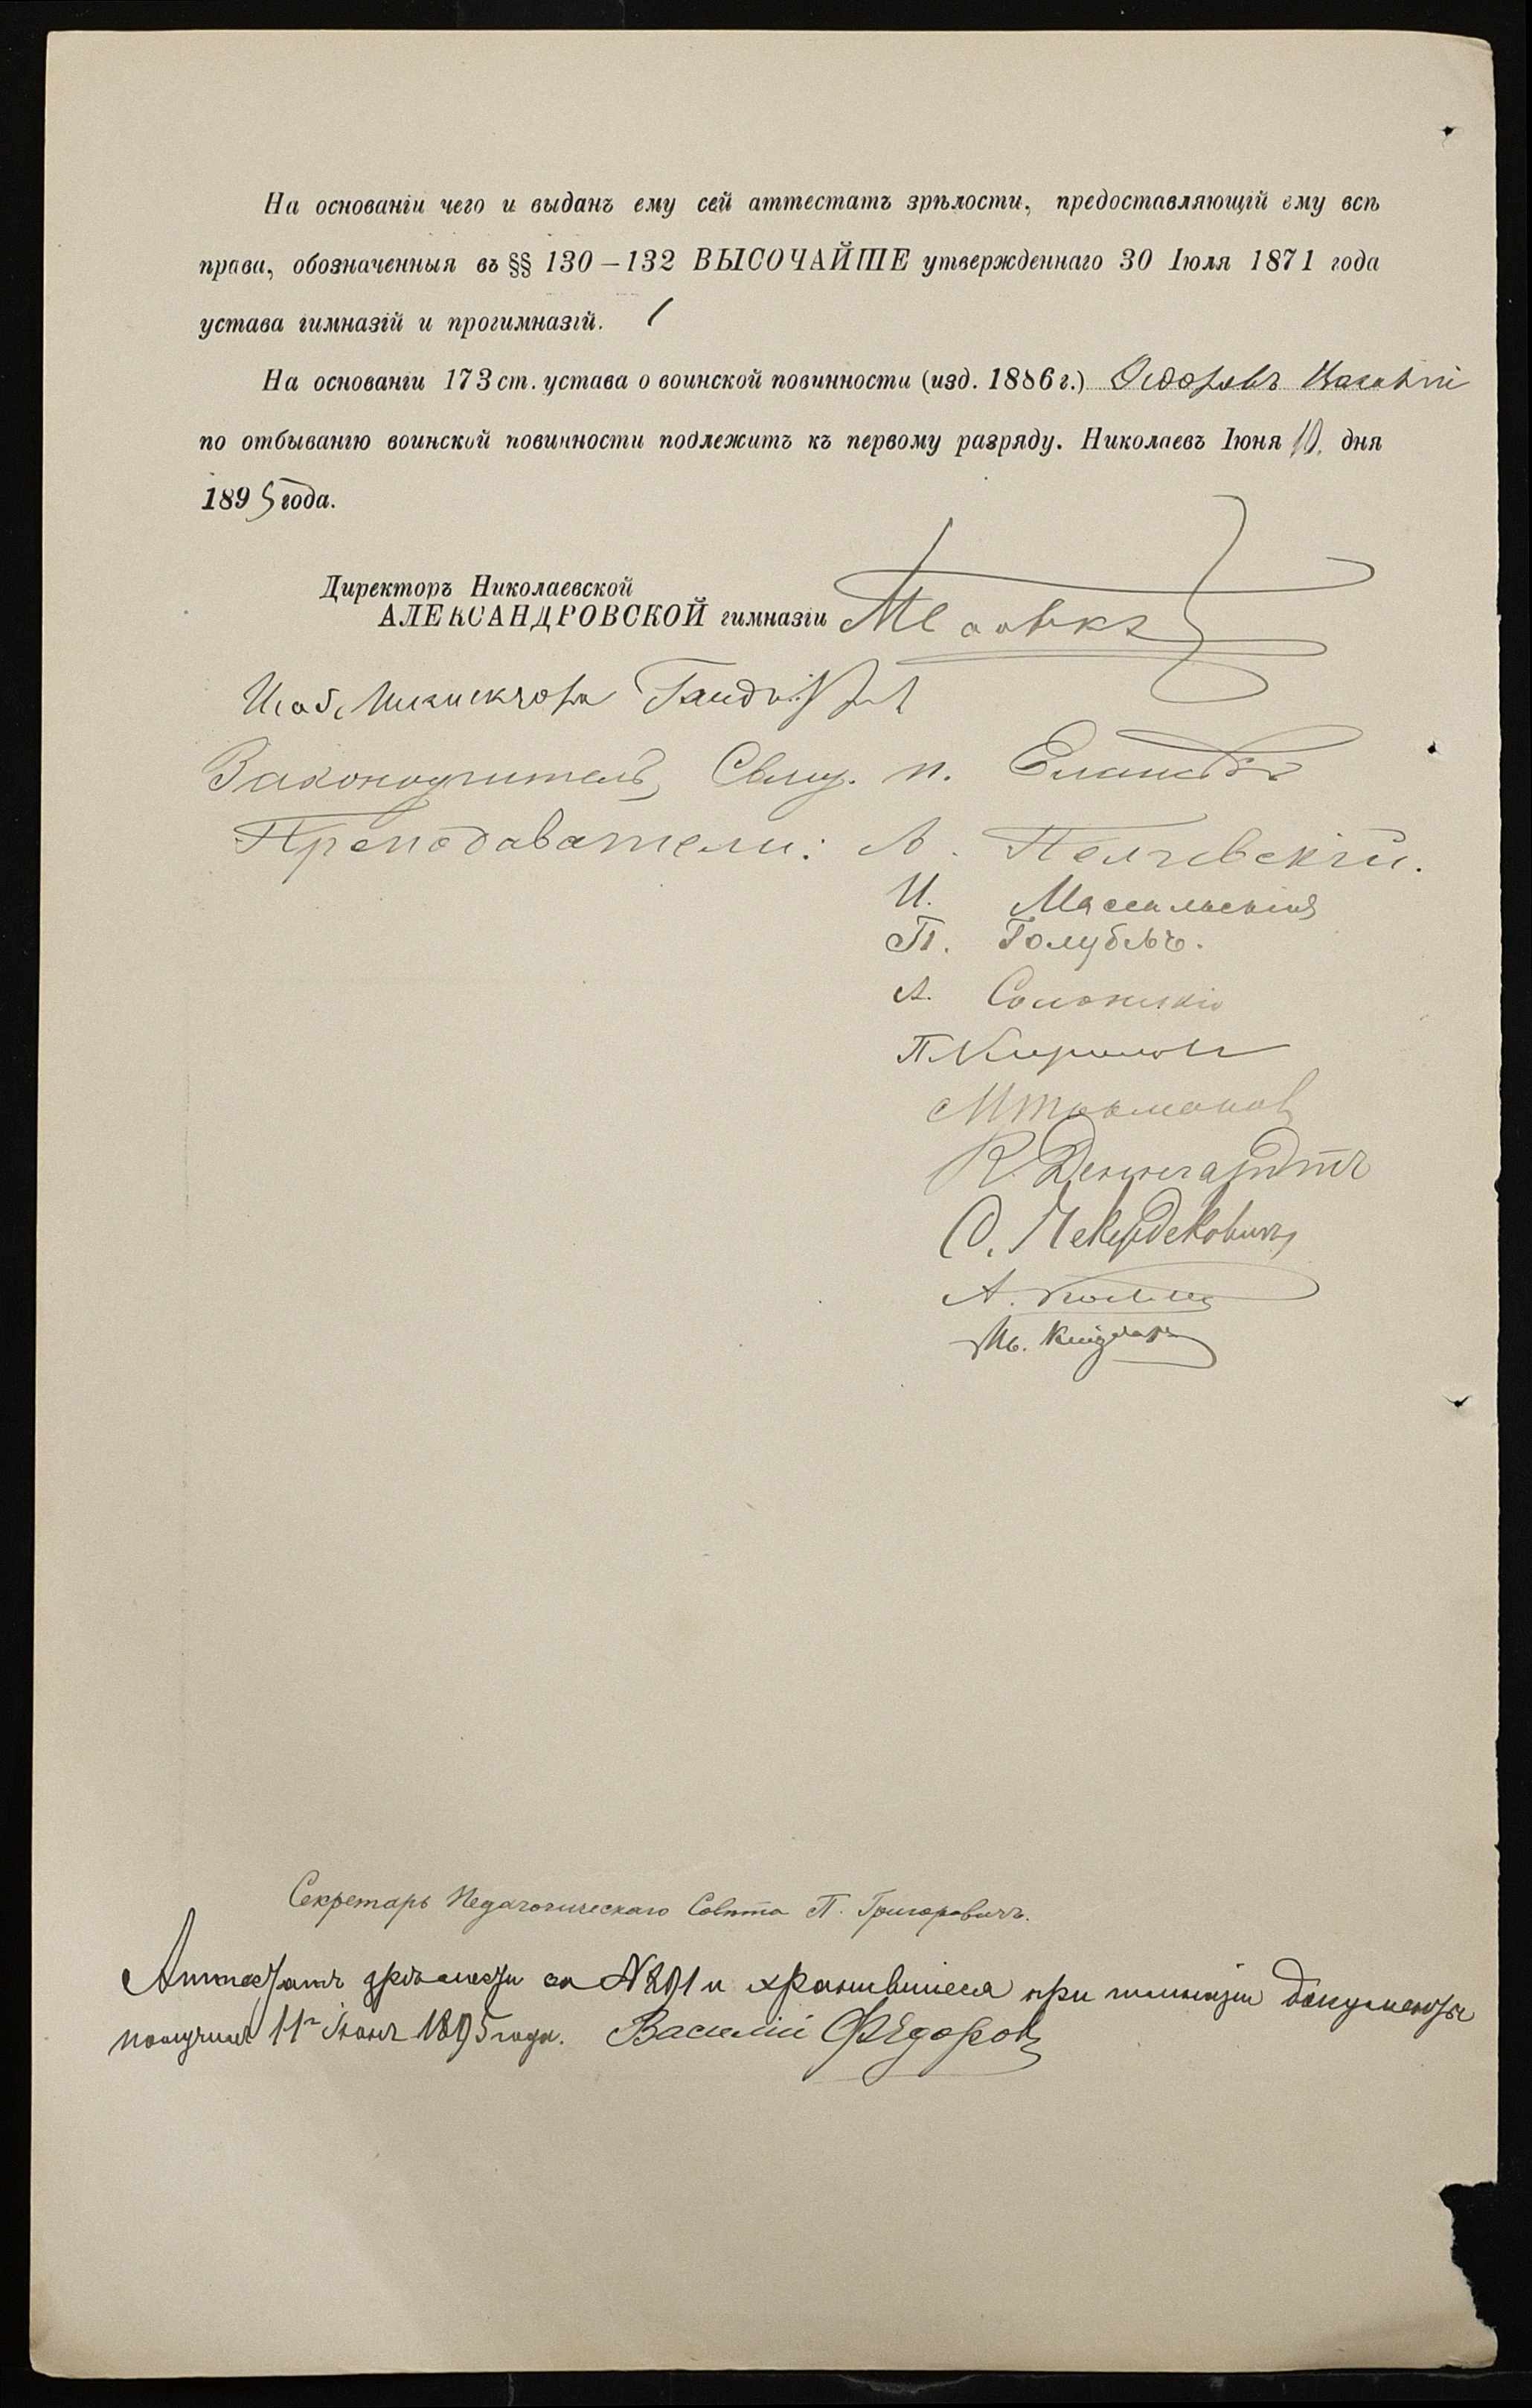 На основаніи чего и выданъ ему сей аттестатъ зрѣлости, предоставляющій ему всѣ
права, обозначенныя въ §§ 130–132 ВЫСОЧАЙШЕ утвержденнаго 30 Іюля 1871 года
устава гимназій и прогимназій.
На основаніи 173 ст. устава о воинской повинности (изд. 1886 г.) Ѳедоровъ Василій
по отбыванію воинской повинности подлежитъ къ первому разряду. Николаевъ Іюня 10. дня
1895 года.
Директоръ Николаевской
АЛЕКСАНДРОВСКОЙ гимназіи
Инспектора
Законоучитель, Свящ. п.
Преподаватели: А.
И.
П. Голубовъ.
А.
П. Кириловъ
К.
О.
А.
Ив.
Секретарь Педагогическаго Совѣта П. Григоровичъ.
Аттестатъ зрѣлости за № 291 и хранившіеся при гимназіи документы
получилъ 11го Іюня 1895 года. Василій Ѳедоровъ